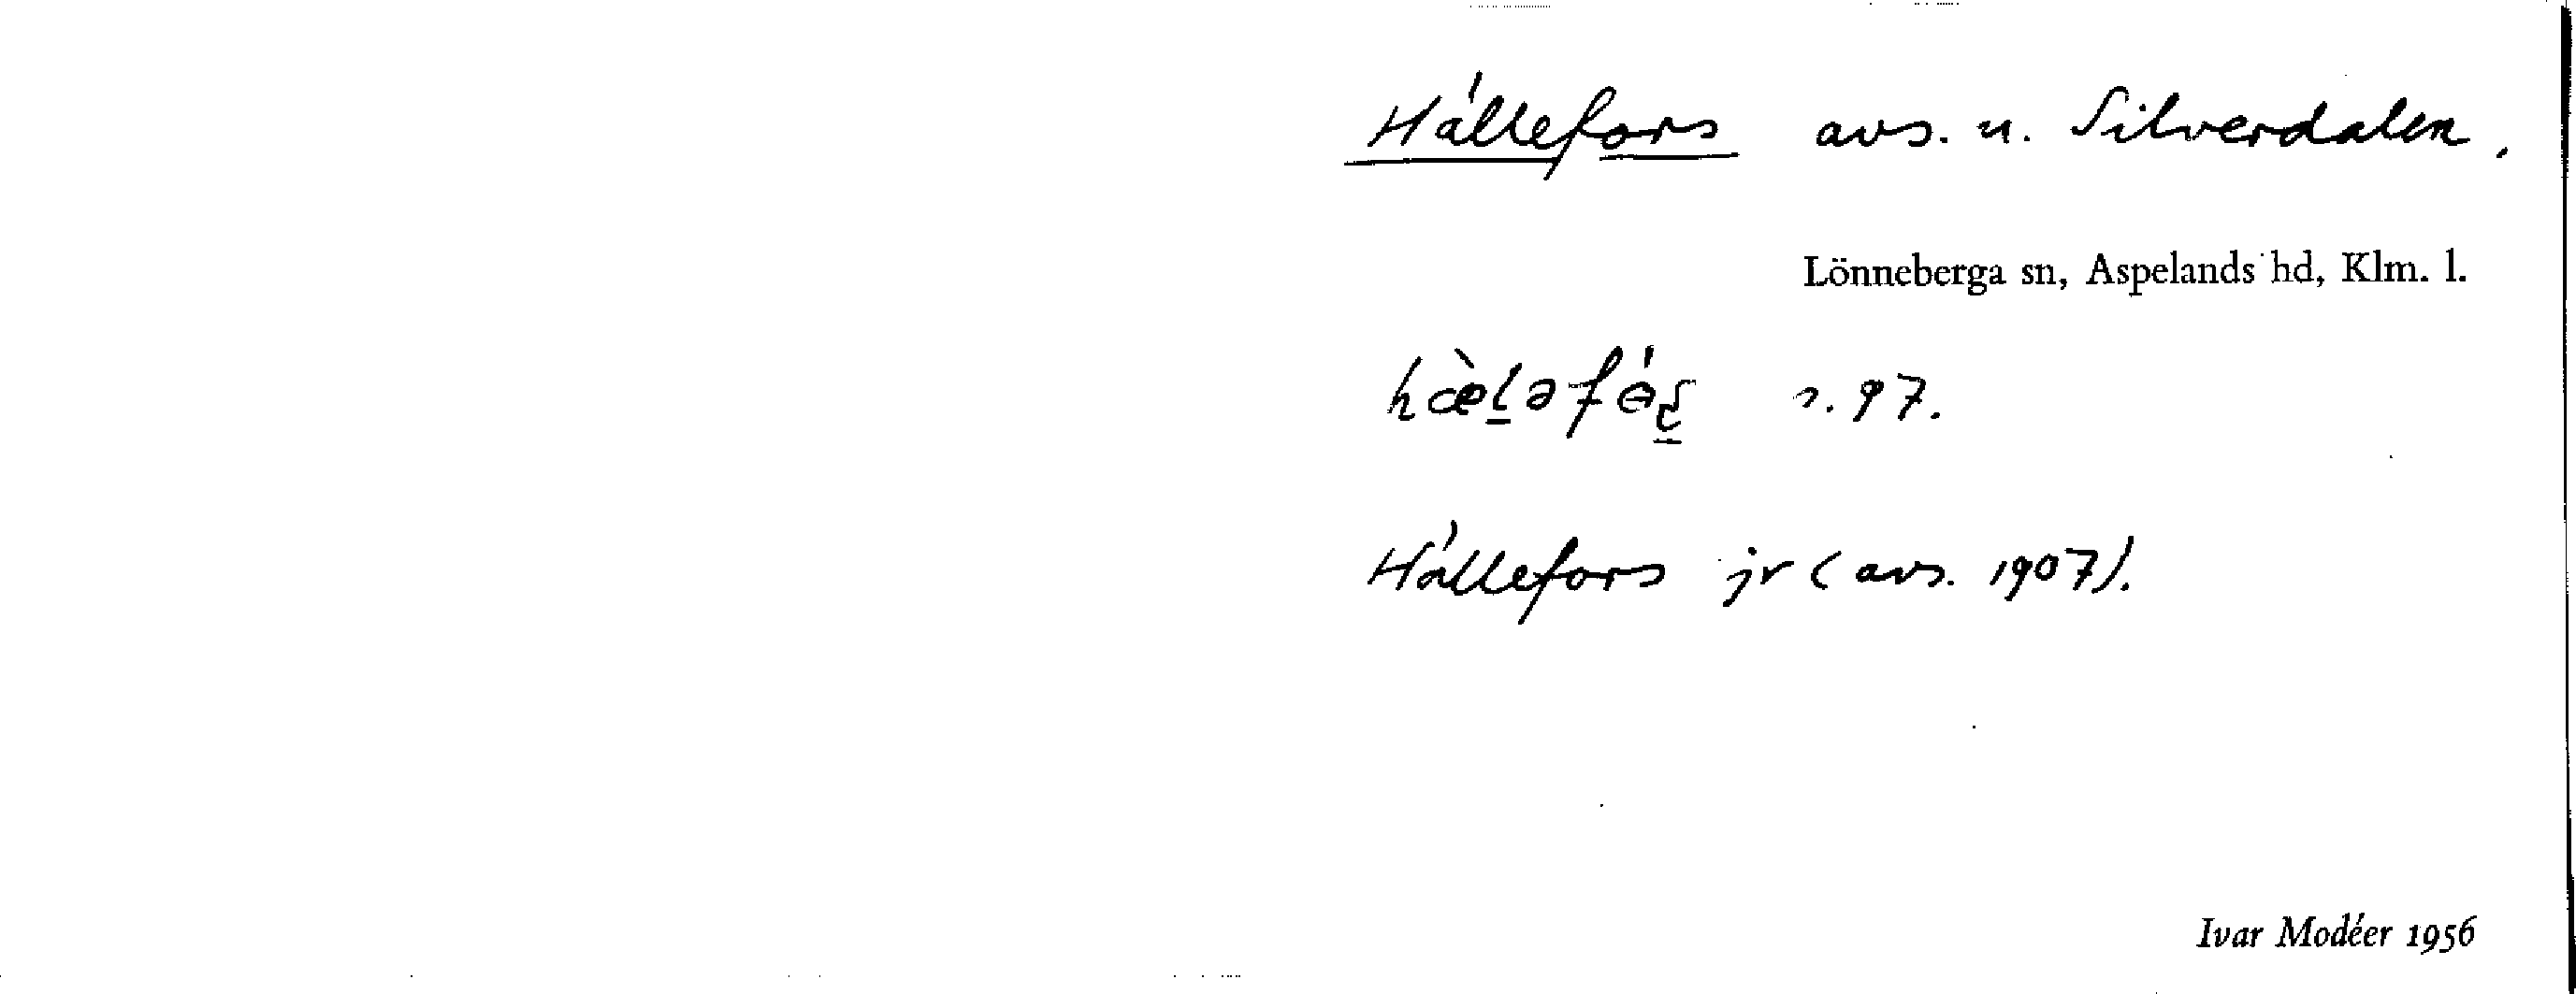 Hällefors avs. u. Silverdalen.
Lönneberga sn, Aspelands hd, Klm. l.
s. 97.
Hällefors jr (avs. 1907).
Ivar Modéer 1956